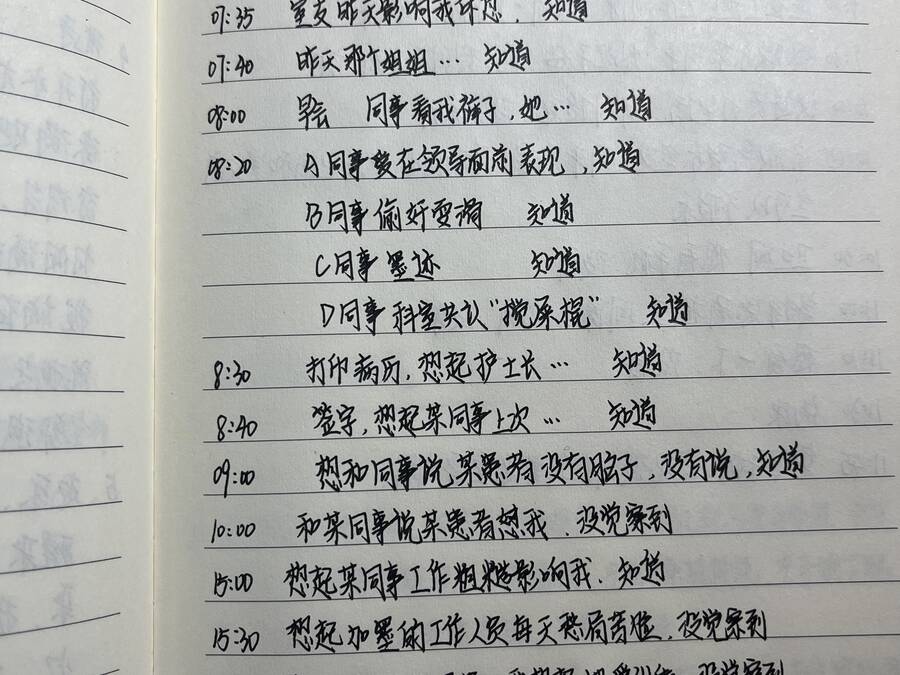 07:35 室友昨天影响我休息、知道
07:40 昨天那个姐姐… 知道
08:00 早会 同事看我裤子,她… 知道
08:20 A同事爱在领导面前表现,知道
B同事偷奸耍滑 知道
C同事墨迹 知道
D同事科室共认"搅屎棍" 知道
8:30 打印病历,想起护士长… 知道
8:40 签字,想起某同事上次… 知道
09:00 想和同事说某患者没有脑子,没有说,知道
10:00 和某同事说某患者怼我、没觉察到
15:00 想起某同事工作粗糙影响我、知道
15:30 想起加墨的工作人员每天愁眉苦脸,没觉察到
没觉察到